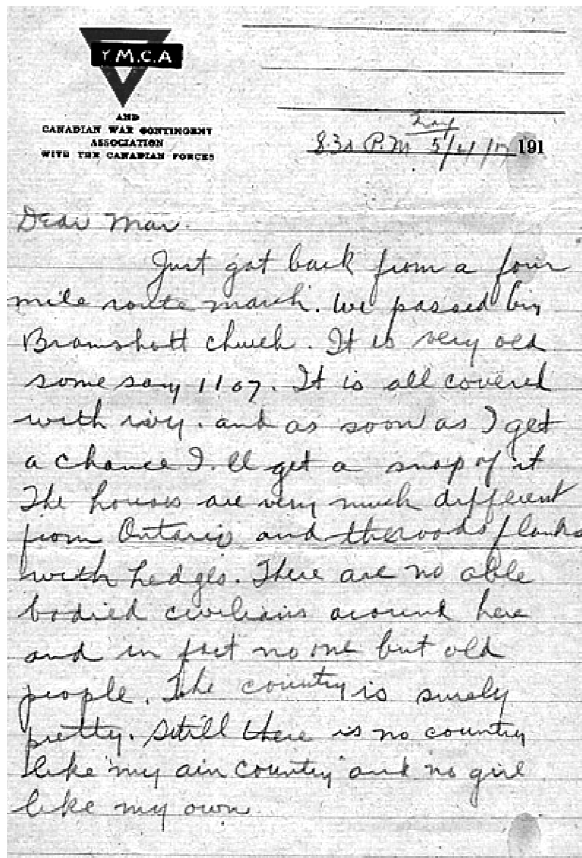 Y.M.C.A
AND
CANADIAN WAR CONTINGENT
ASSOCIATION
WITH THE CANADIAN FORCES
8.30 P.M 5/4/17 191
Dear Mar.
Just got back from a four
mile route march. We passed by
Bramshott church. It is very old
some say 1107. It is all covered
with ivy. and as soon as I get
a chance I.ll get a snap of it
The houses are very much different
from Ontario and the roads flanked
with hedges. There are no able
bodied civilians around here
and in fact no one but old
people. The country is surely
pretty. Still there is no country
like "my ain country" and no girl
like my own.